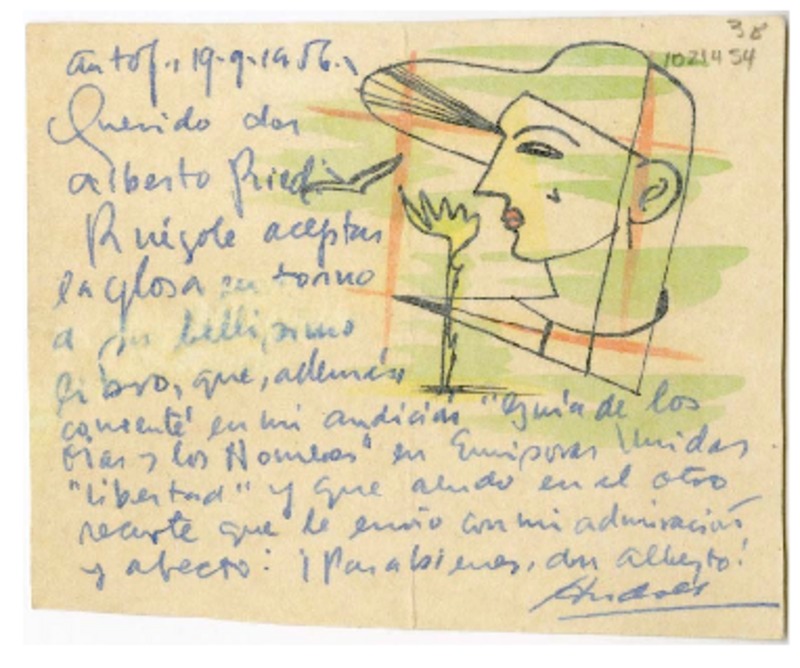 38
1021454
Antof., 19-9-1956.
Querido don
Alberto Ried:
Ruégole aceptar
la glosa en torno
a su bellísimo
libro, que, además
comenté en mi audición "Guía de los
Días y los Hombres" en Emisoras Unidas
"Libertad" y que aludo en el otro
recorte que le envío con mi admiración
y afecto: ¡Parabienes, don Alberto!
Andrés